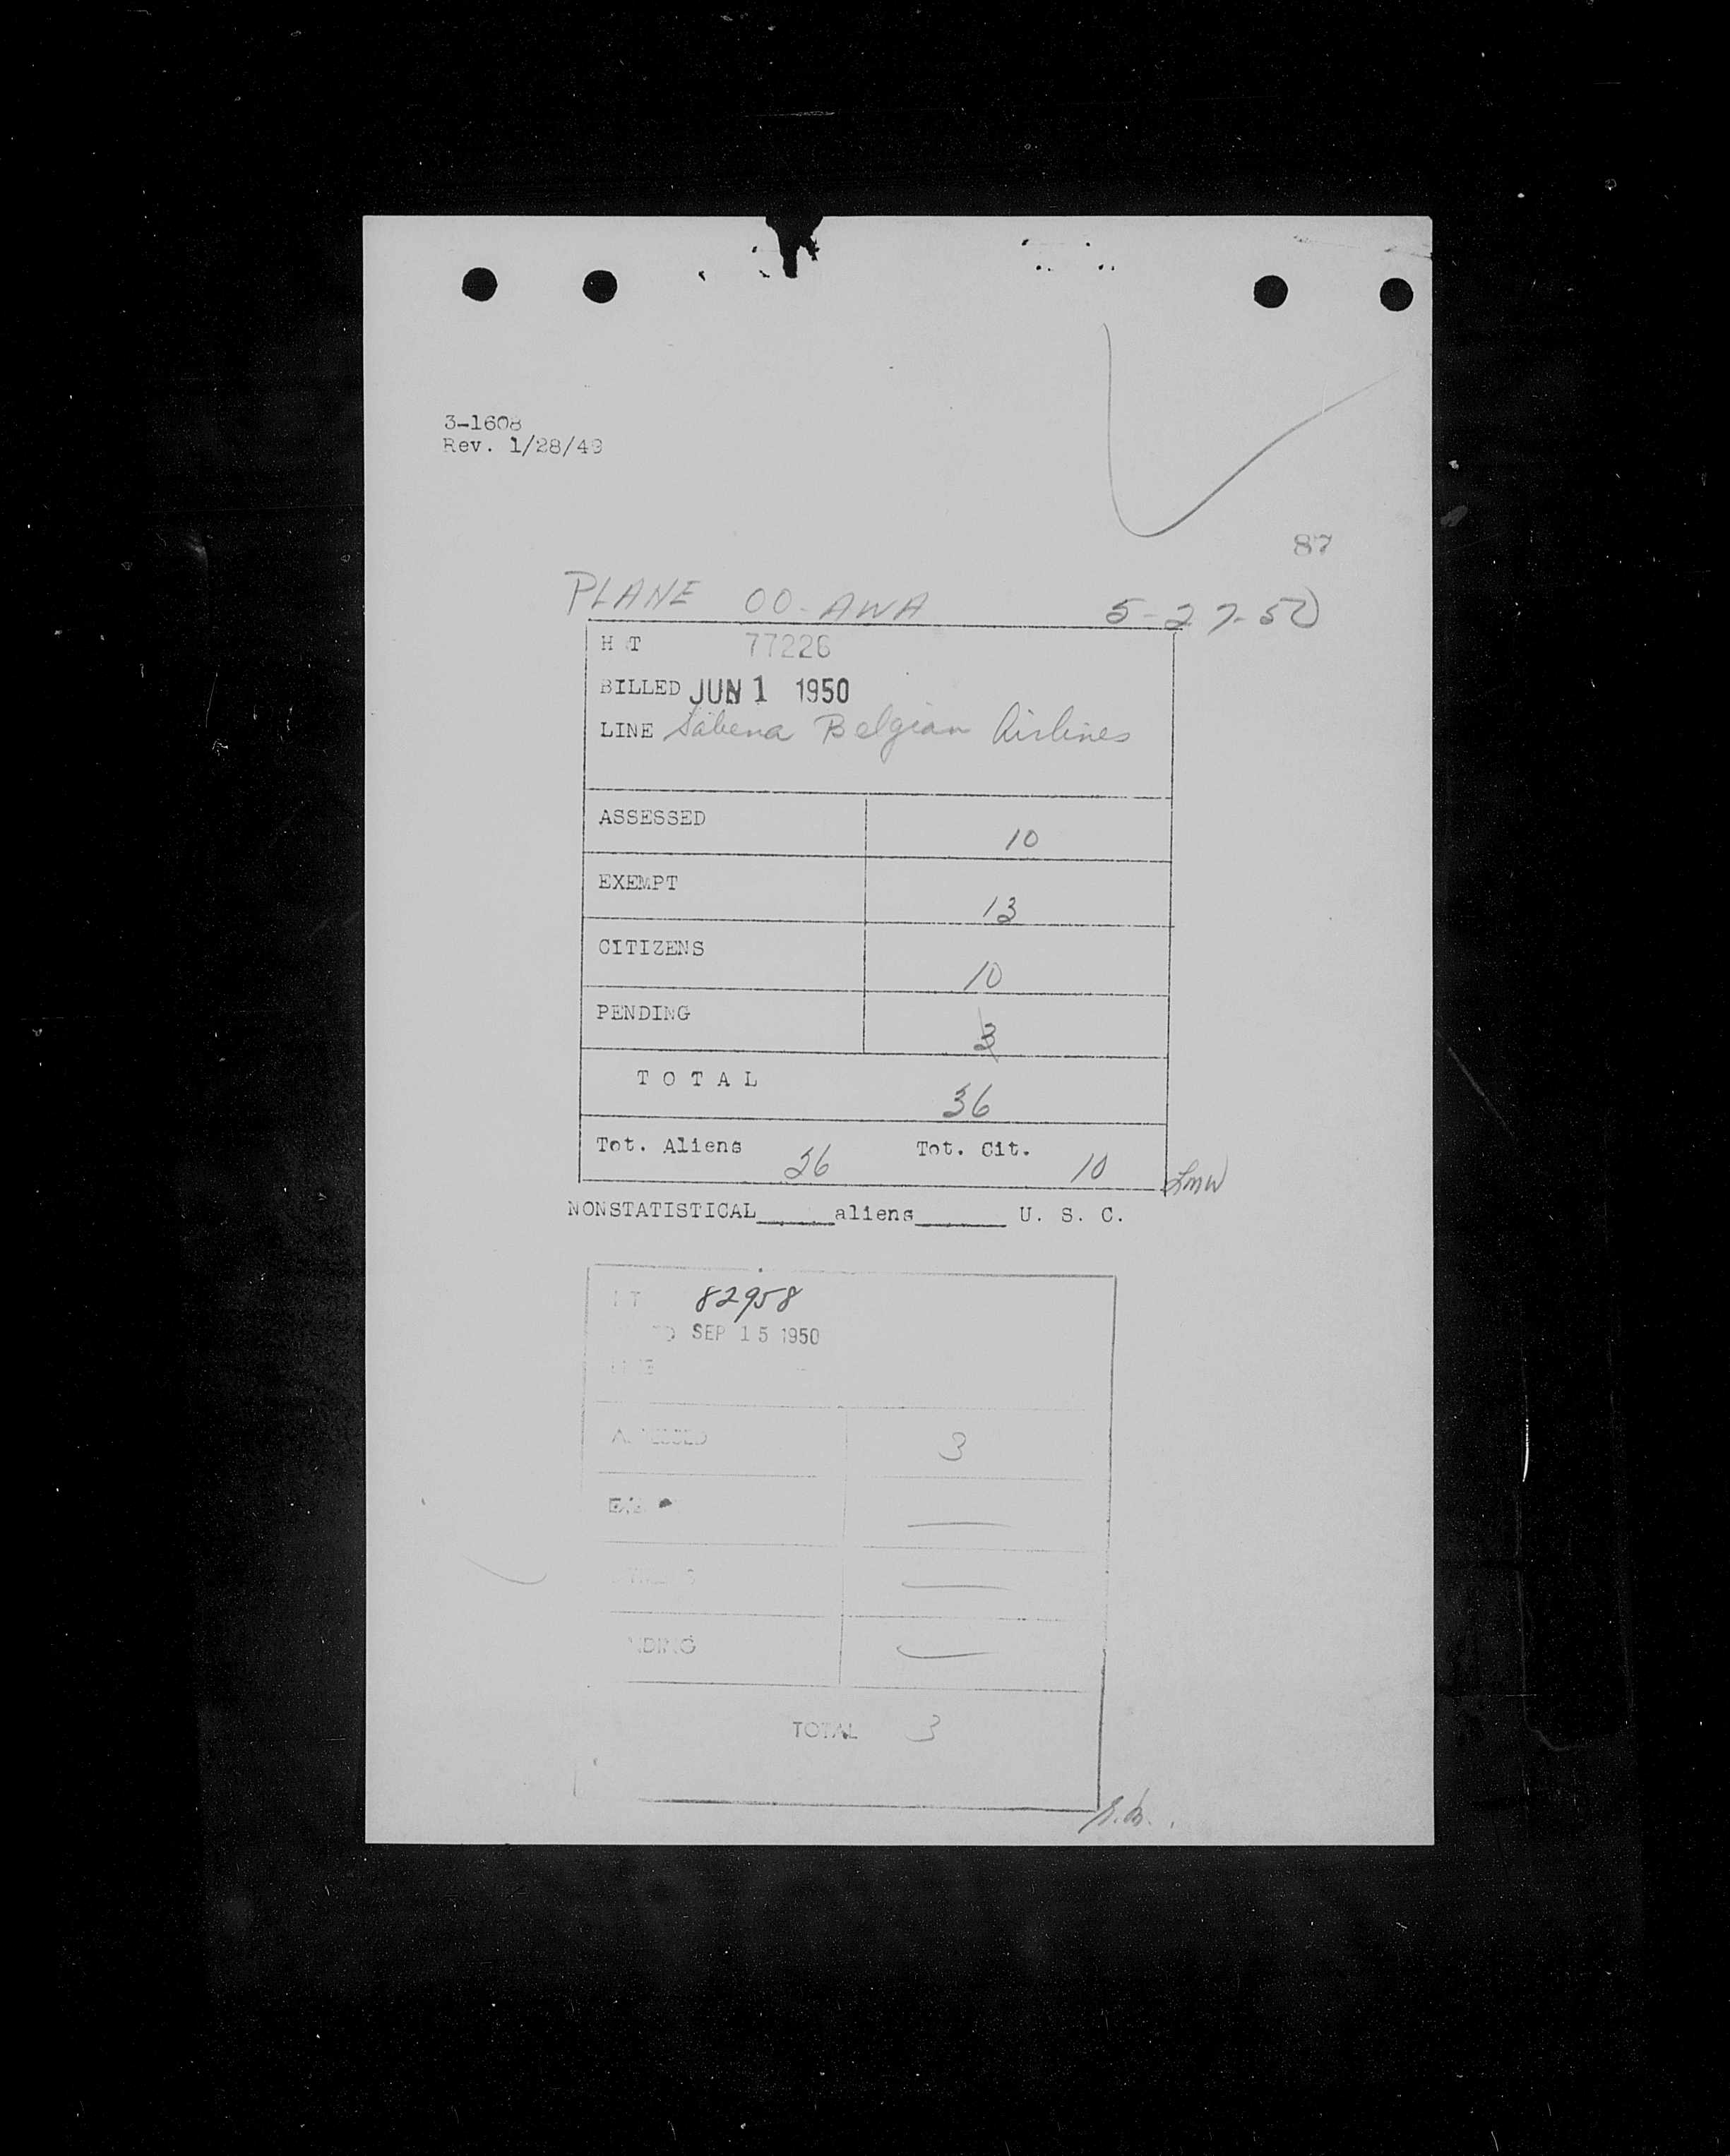 3-1608
Rev. 1/28/49
87
PLANE OO-AWA 5-27-50
H T 77226
BILLED JUN 1 1950
LINE Sabena Belgian Airlines
ASSESSED 10
EXEMPT 13
CITIZENS 10
PENDING 3
TOTAL 36
Tot. Aliens 26 Tot. Cit. 10
LMW
NONSTATISTICAL______aliens_______ U. S. C.
82958
SEP 15 1950
3
TOTAL 3